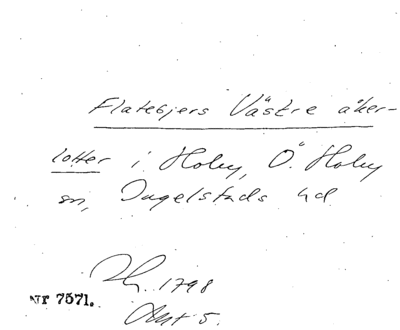 Flatebjers Västre åker-
lotter i Hoby, Ö. Hoby
sn, Ingelstads hd
1798
Akt 5.
Nr 7571.